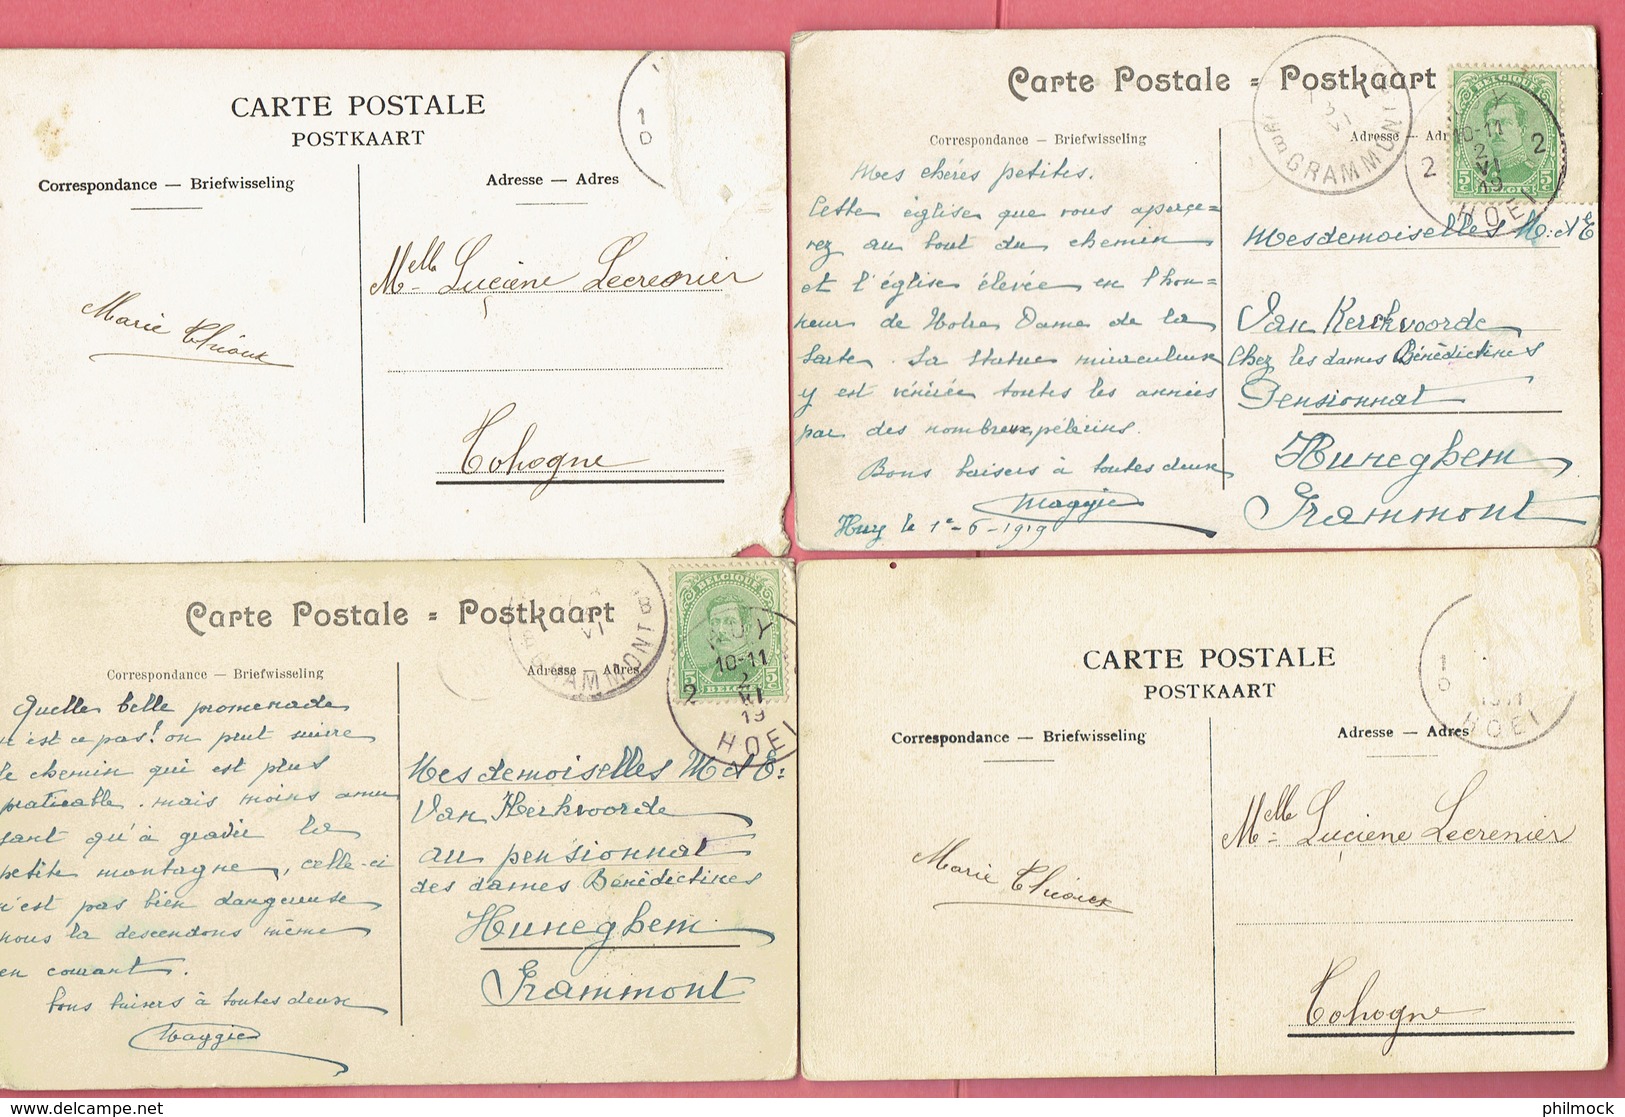 CARTE POSTALE
POSTKAART
Correspondance — Briefwisseling
Adresse — Adres
1
D
Melle Luçiene Lecrenier
Marie Thioux
Tohogne
Carte Postale = Postkaart
Correspondance — Briefwisseling
Adresse — Adr
GRAMMONT
BELGIQUE
5c BELGIE 5c
10-11
2 2 2
VI
19
HOEI
Mes chéres petites.
Cette église que vous aperçe=
vez au bout du chemin
et l'église élevée en l'hon=
neur de Notre Dame de la
Sarte. La statue miraculeuse
y est vénérée toutes les années
par des nombreux pélerins.
Bons baisers à toutes deux
Maggie
Huy le 1r-6-1919
Mesdemoiselles M. et E
Van Kerckvoorde
Chez les dames Bénédictines
Pensionnat
Huneghem
Grammont
Carte Postale = Postkaart
Correspondance — Briefwisseling
Adresse — Adres
BELGIQUE
HUY
10-11
2 2
VI
19
HOEI
Quelle belle promenade
n'est ce pas! on peut suivre
le chemin qui est plus
praticable. mais moins amu
sant qu'à gravir la
petite montagne, celle-ci
n'est pas bien dangereuse
nous la descendons même
en courant.
bons baisers à toutes deux
Maggie
Mesdemoiselles M et E:
Van Kerkvoorde
au pensionnat
des dames Bénédictines
Huneghem
Grammont
CARTE POSTALE
POSTKAART
Correspondance — Briefwisseling
Adresse — Adres
1
D
1911
HOEI
Melle Luçiene Lecrenier
Marie Thioux
Tohogne
philmock © delcampe.net